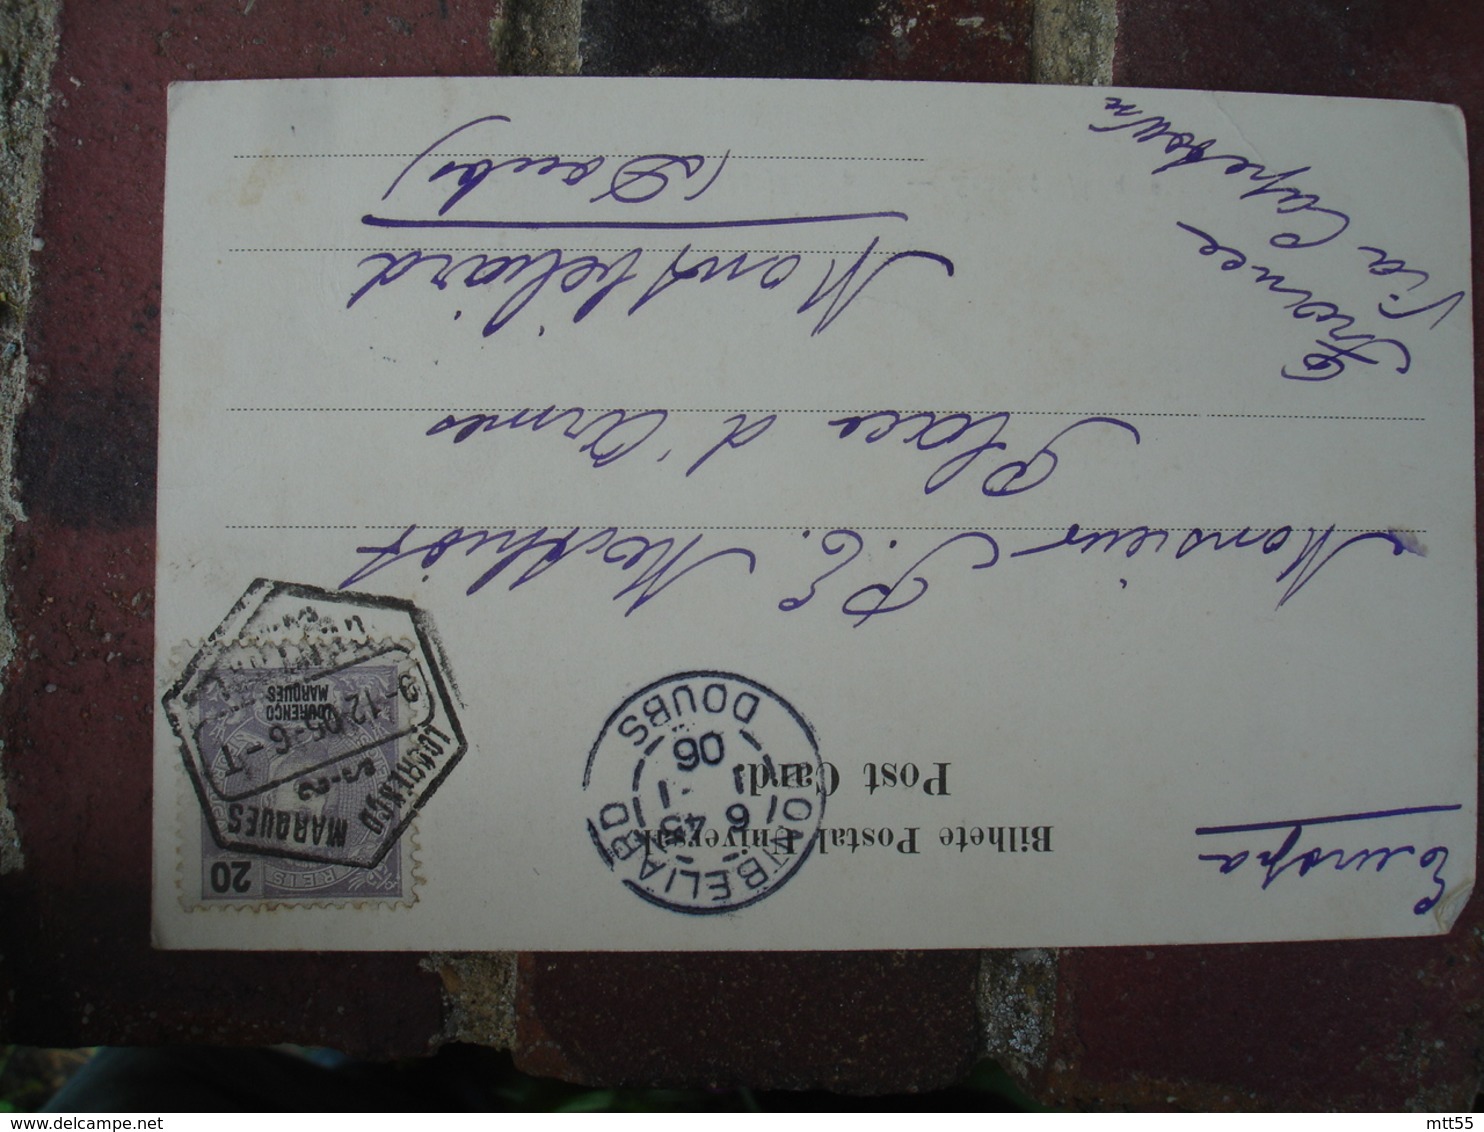 Europa
Bilhete Postal Universal
Post Card.
MONTBÉLIARD
6 45
1
06
DOUBS
20
REIS
LOURENÇO
MARQUES
LOURENÇO
MARQUES
S-2
9-12 05-6-T
Monsieur P. E.
Place d'Armes
Montbéliard
(Doubs)
France
Via Capetown
mtt55